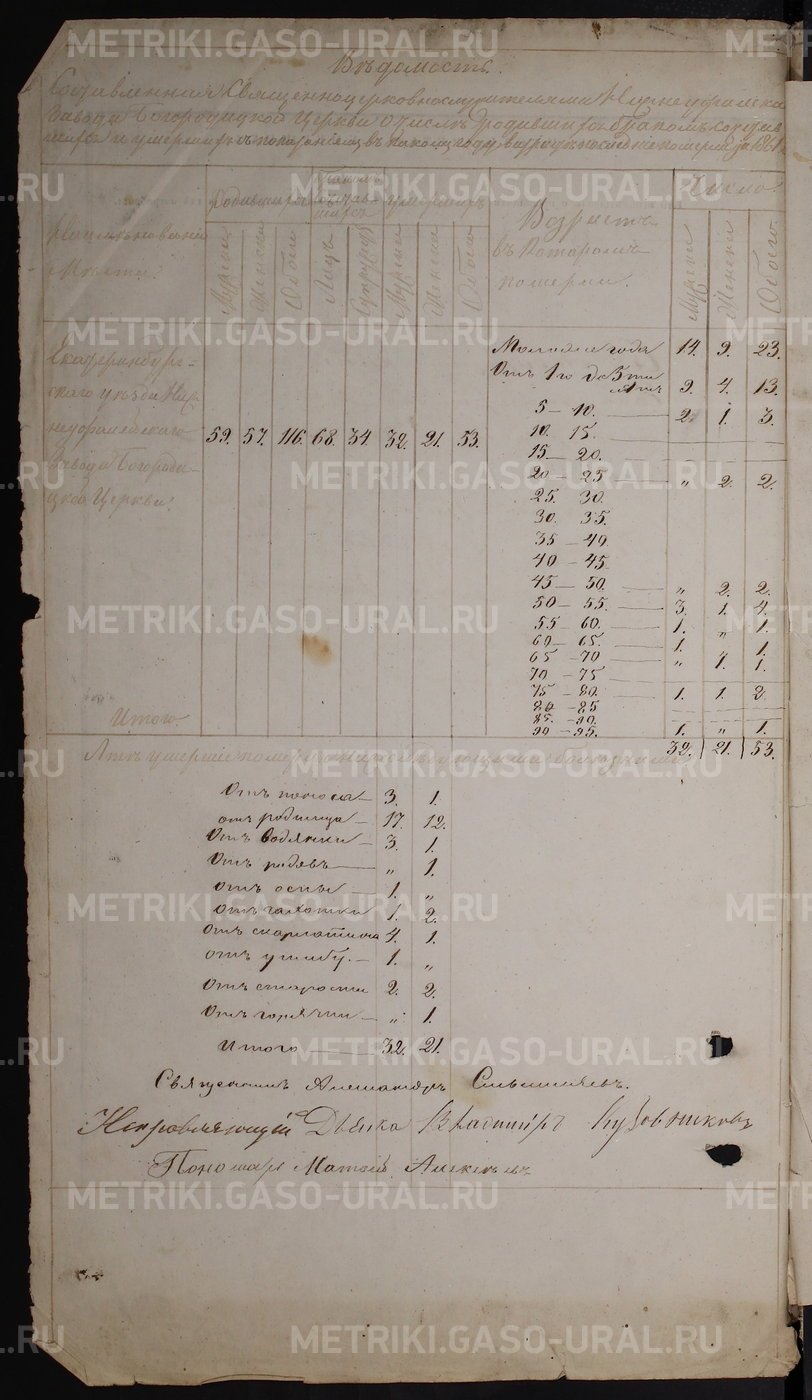 Вѣдомость.
Составленная Священноцерковнослужителями
Завода Богородицкой Церкви о числѣ родившихся, бракомъ сочетав
шихся и умершихъ съ показаніемъ въ какомъ году возраста послѣдніе померли за 1861
родившихся бракомъ сочетавшихся умершихъ Возрастъ въ которомъ померли. Число.
Наименованіе Мѣста.
Мужска Женска Обоего Лицъ Супруж Мужска Женска Обоего Мужска Женска Обоего
Екатеринбург-
скаго уѣзда
Завода Богороди-
цкой Церкви.
59. 57. 116. 68. 34. 32. 21. 53.
Моложе года 14. 9. 23.
Отъ 1го до 5ти лѣтъ 9. 4. 13.
5 — 10. 2. 1. 3.
10. 15.
15 — 20.
20 — 25 „ 2. 2.
25. 30.
30. 35.
35 — 40
40 — 45.
45 — 50. „ 2. 2.
50 — 55. 3. 1. 4.
55 60. 1. „ 1.
60 — 65. 1. 1.
65 — 70 „ 1. 1.
70 — 75
75 — 80 1. 1. 2.
80 — 85
85. — 90.
90 — 95. 1. „ 1.
Итого. 32. 21. 53.
Отъ поноса — 3. 1.
отъ родимца — 17. 12.
Отъ водянки — 3. 1.
Отъ родовъ — „ 1.
Отъ оспы — 1. „
Отъ чахотки 1. 2.
Отъ скарлатины 4. 1.
отъ ушибу. — 1. „
Отъ старости 2. 2.
Отъ горячки — „ 1.
Итого — 32. 21.
Священникъ Александръ
Исправляющій Дьячка Владиміръ
Пономарь Матѳей
METRIKI.GASO-URAL.RU